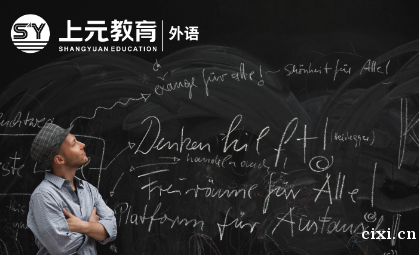 SY 上元教育 外语
SHANGYUAN EDUCATION
für alle! ~ Schönheit für Alle!
Denken hilft! (Heidegger)
handeln auch
Freiräume für Alle!
Plattform für Austausch!
cixi.cn